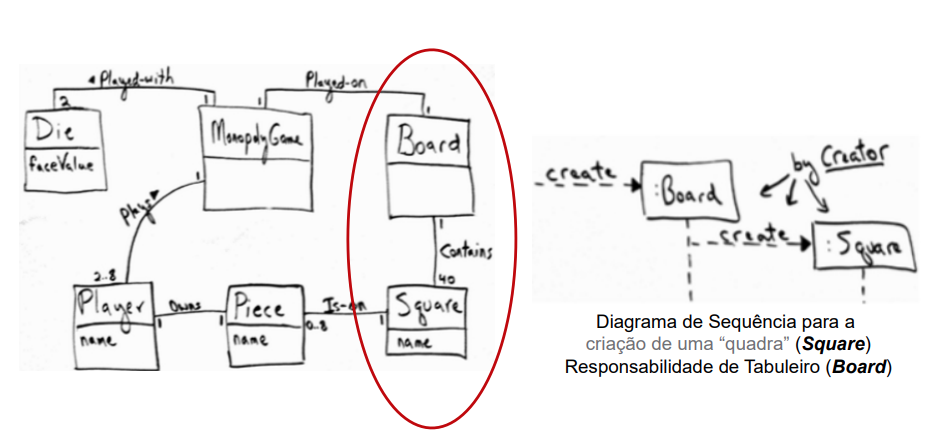 ◄ Played-with
Played-on
2
1
1
1
Die
faceValue
MonopolyGame
Board
Plays
1
1
Contains
2..8
40
Player
name
Owns
1
1
Piece
name
Is-on
0..8
1
Square
name
create
:Board
by Creator
create
:Square
Diagrama de Sequência para a
criação de uma “quadra” (Square)
Responsabilidade de Tabuleiro (Board)